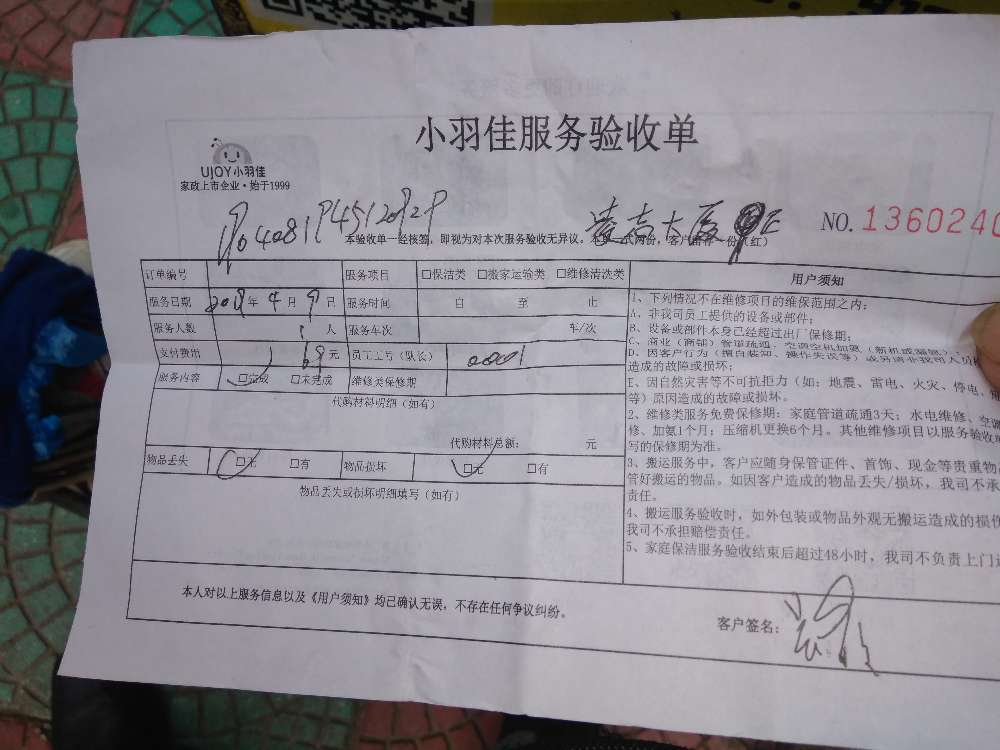 小羽佳服务验收单
UJOY小羽佳
家政上市企业·始于1999
NO. 1360240
凌高大厦 E
本验收单一经核签，即视为对本次服务验收无异议，本单一式两份，客户留存一份（红）
订单编号 服务项目 □保洁类 □搬家运输类 □维修清洗类
服务日期 2019年4月9日 服务时间 自 至 止
服务人数 1人 服务车次 车/次
支付费用 169元 员工工号（队长） 00001
服务内容 □完成 □未完成 维修类保修期
代购材料明细（如有）
代购材料总额： 元
物品丢失 □无 □有 物品损坏 □无 □有
物品丢失或损坏明细填写（如有）
用户须知
1、下列情况不在维修项目的维保范围之内：
A、非我司员工提供的设备或部件；
B、设备或部件本身已经超过出厂保修期；
C、商业（商铺）管道疏通、空调全机加氨（新机或漏氨）
D、因客户行为（擅自装卸、操作失误等）或另请非我司人员
造成的故障或损坏；
E、因自然灾害等不可抗拒力（如：地震、雷电、火灾、停电、
等）原因造成的故障或损坏。
2、维修类服务免费保修期：家庭管道疏通3天；水电维修、空调
修、加氨1个月；压缩机更换6个月。其他维修项目以服务验收
写的保修期为准。
3、搬运服务中，客户应随身保管证件、首饰、现金等贵重物
管好搬运的物品。如因客户造成的物品丢失/损坏，我司不承
责任。
4、搬运服务验收时，如外包装或物品外观无搬运造成的损伤
我司不承担赔偿责任。
5、家庭保洁服务验收结束后超过48小时，我司不负责上门
本人对以上服务信息以及《用户须知》均已确认无误，不存在任何争议纠纷。
客户签名：